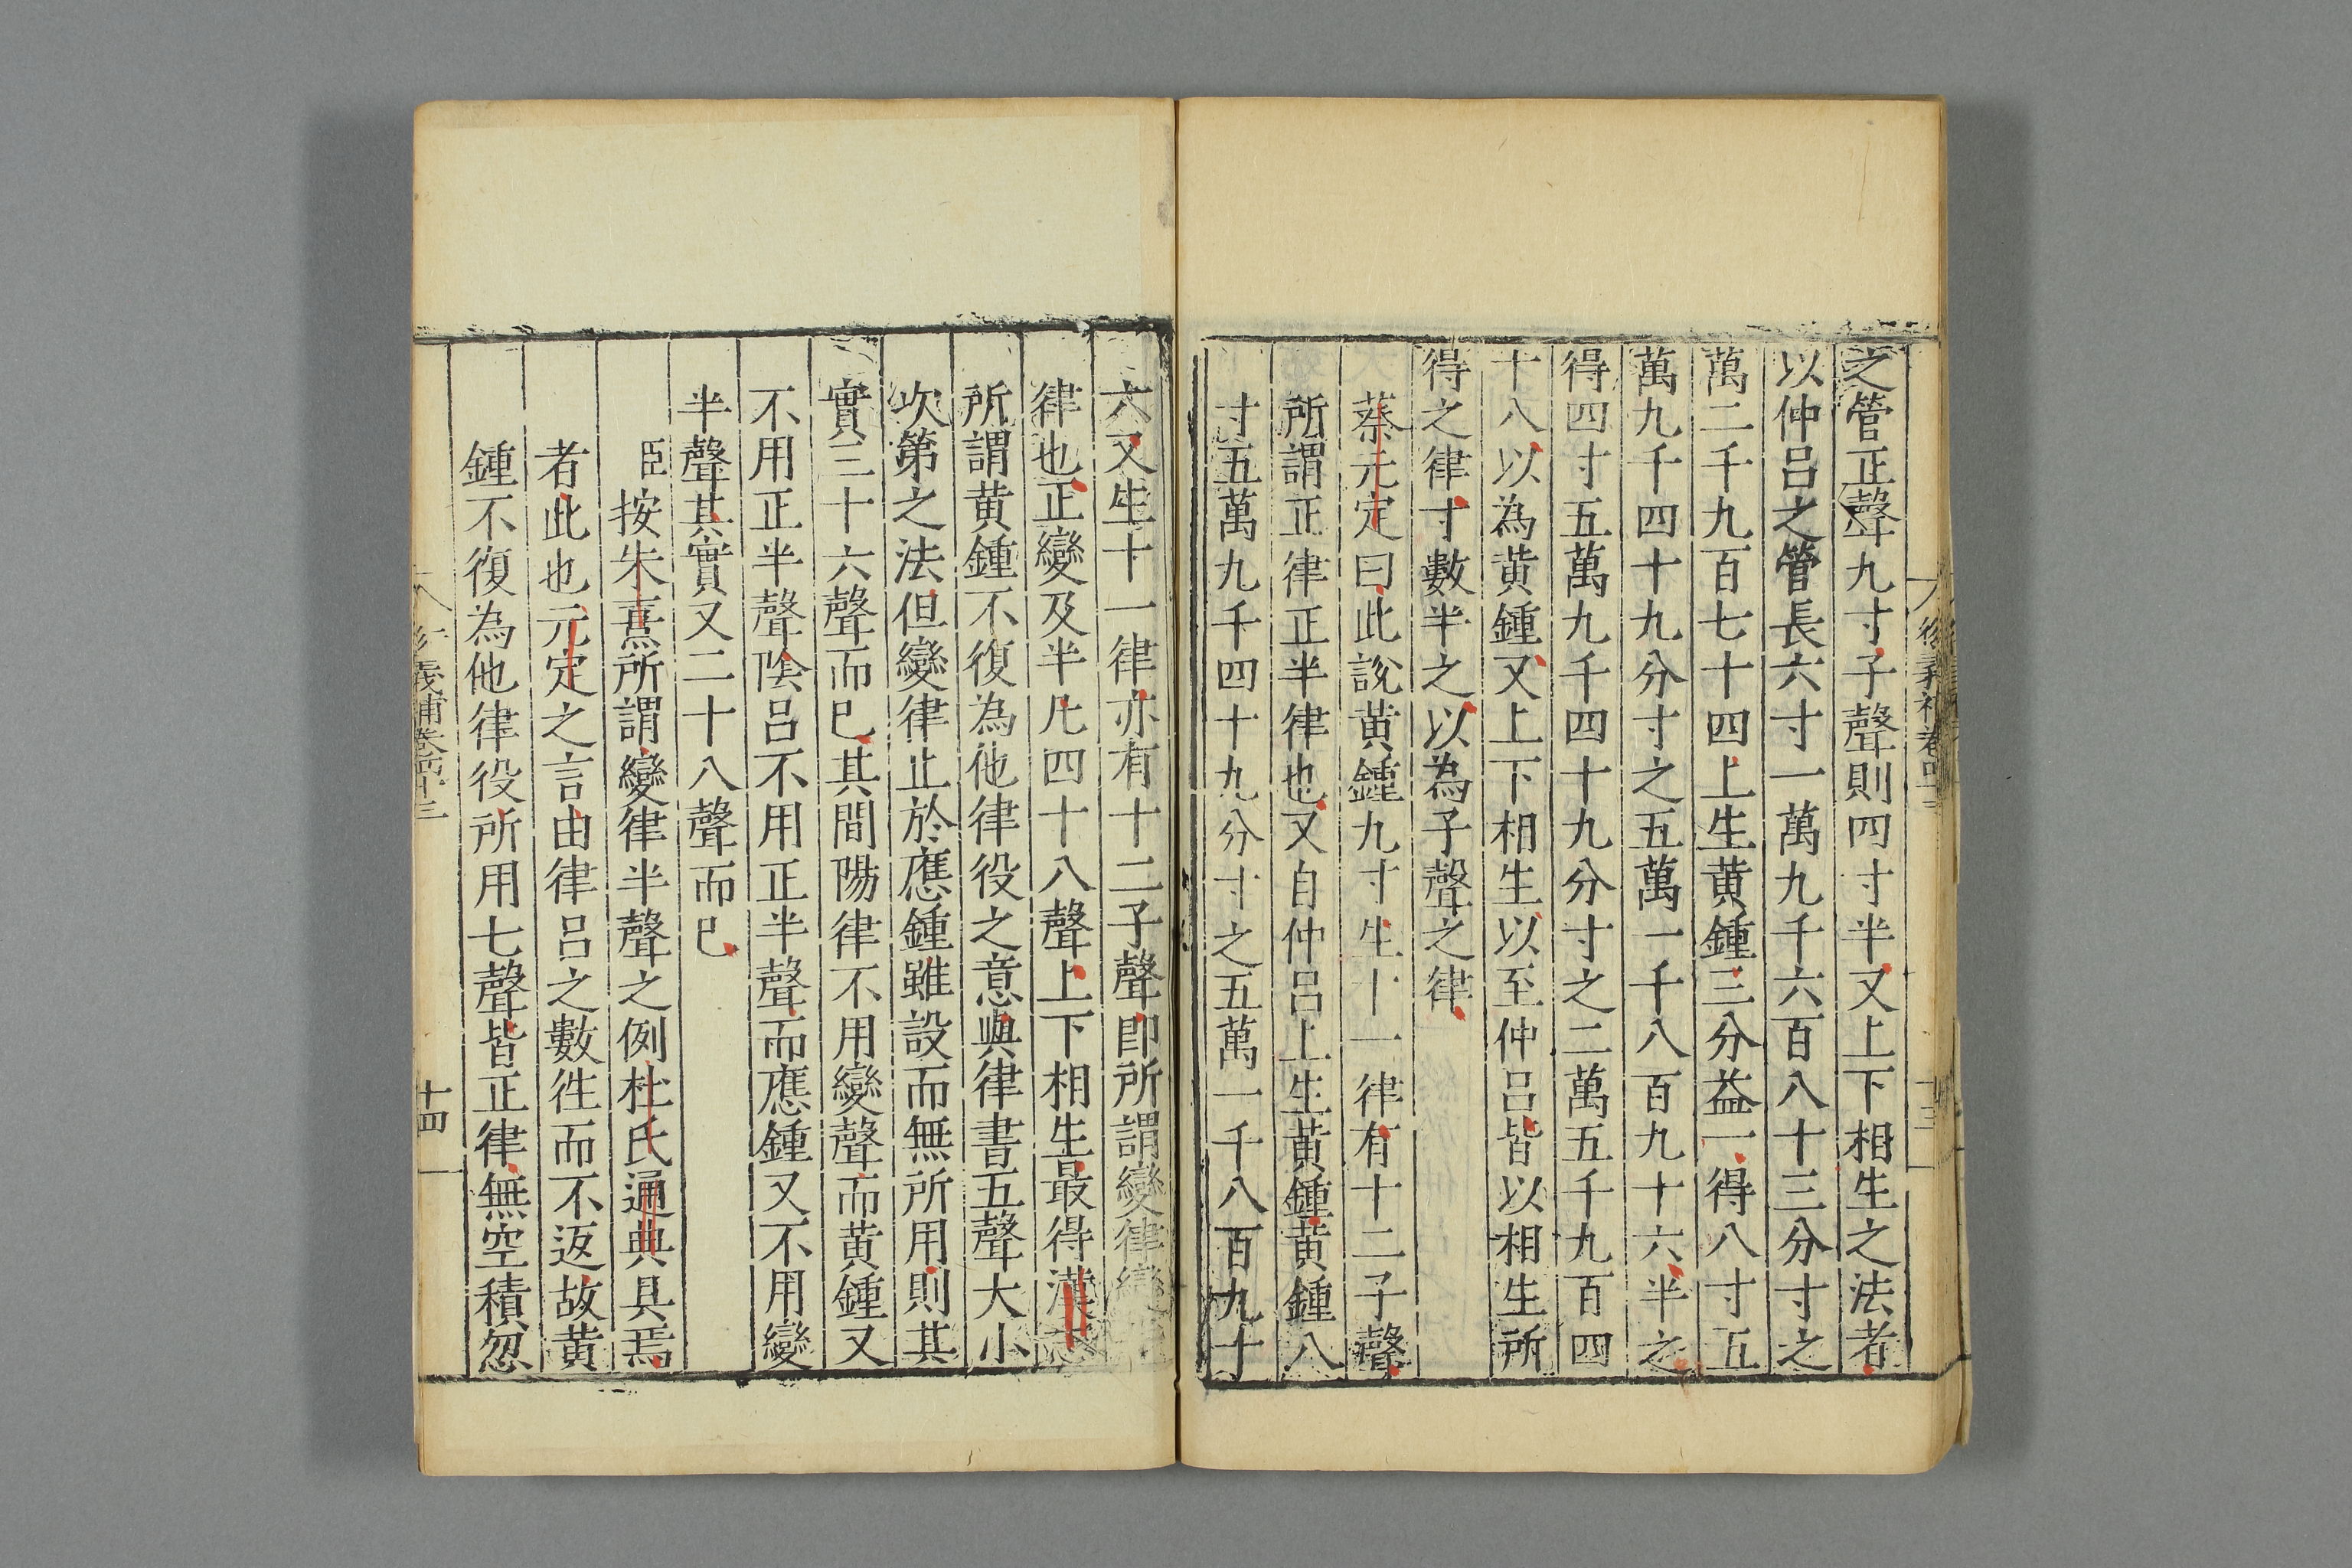 之管正聲九寸子聲則四寸半又上下相生之法者
以仲呂之管長六寸一萬九千六百八十三分寸之
萬二千九百七十四上生黃鍾三分益一得八寸五
萬九千四十九分寸之五萬一千八百九十六半之
得四寸五萬九千四十九分寸之二萬五千九百四
十八以為黃鍾又上下相生以至仲呂皆以相生所
得之律寸數半之以為子聲之律
蔡元定曰此說黃鍾九寸生十一律有十二子聲
所謂正律正半律也又自仲呂上生黃鍾黃鍾八
寸五萬九千四十九分寸之五萬一千八百九十
六又生十一律亦有十二子聲即所謂變律變半
律也正變及半凡四十八聲上下相生最得漢志
所謂黃鍾不復為他律役之意與律書五聲大小
次第之法但變律止於應鍾雖設而無所用則其
實三十六聲而已其間陽律不用變聲而黃鍾又
不用正半聲陰呂不用正半聲而應鍾又不用變
半聲其實又二十八聲而已
臣按朱熹所謂變律半聲之例杜氏通典具焉
者此也元定之言由律呂之數徃而不返故黃
鍾不復為他律役所用七聲皆正律無空積忽
十四